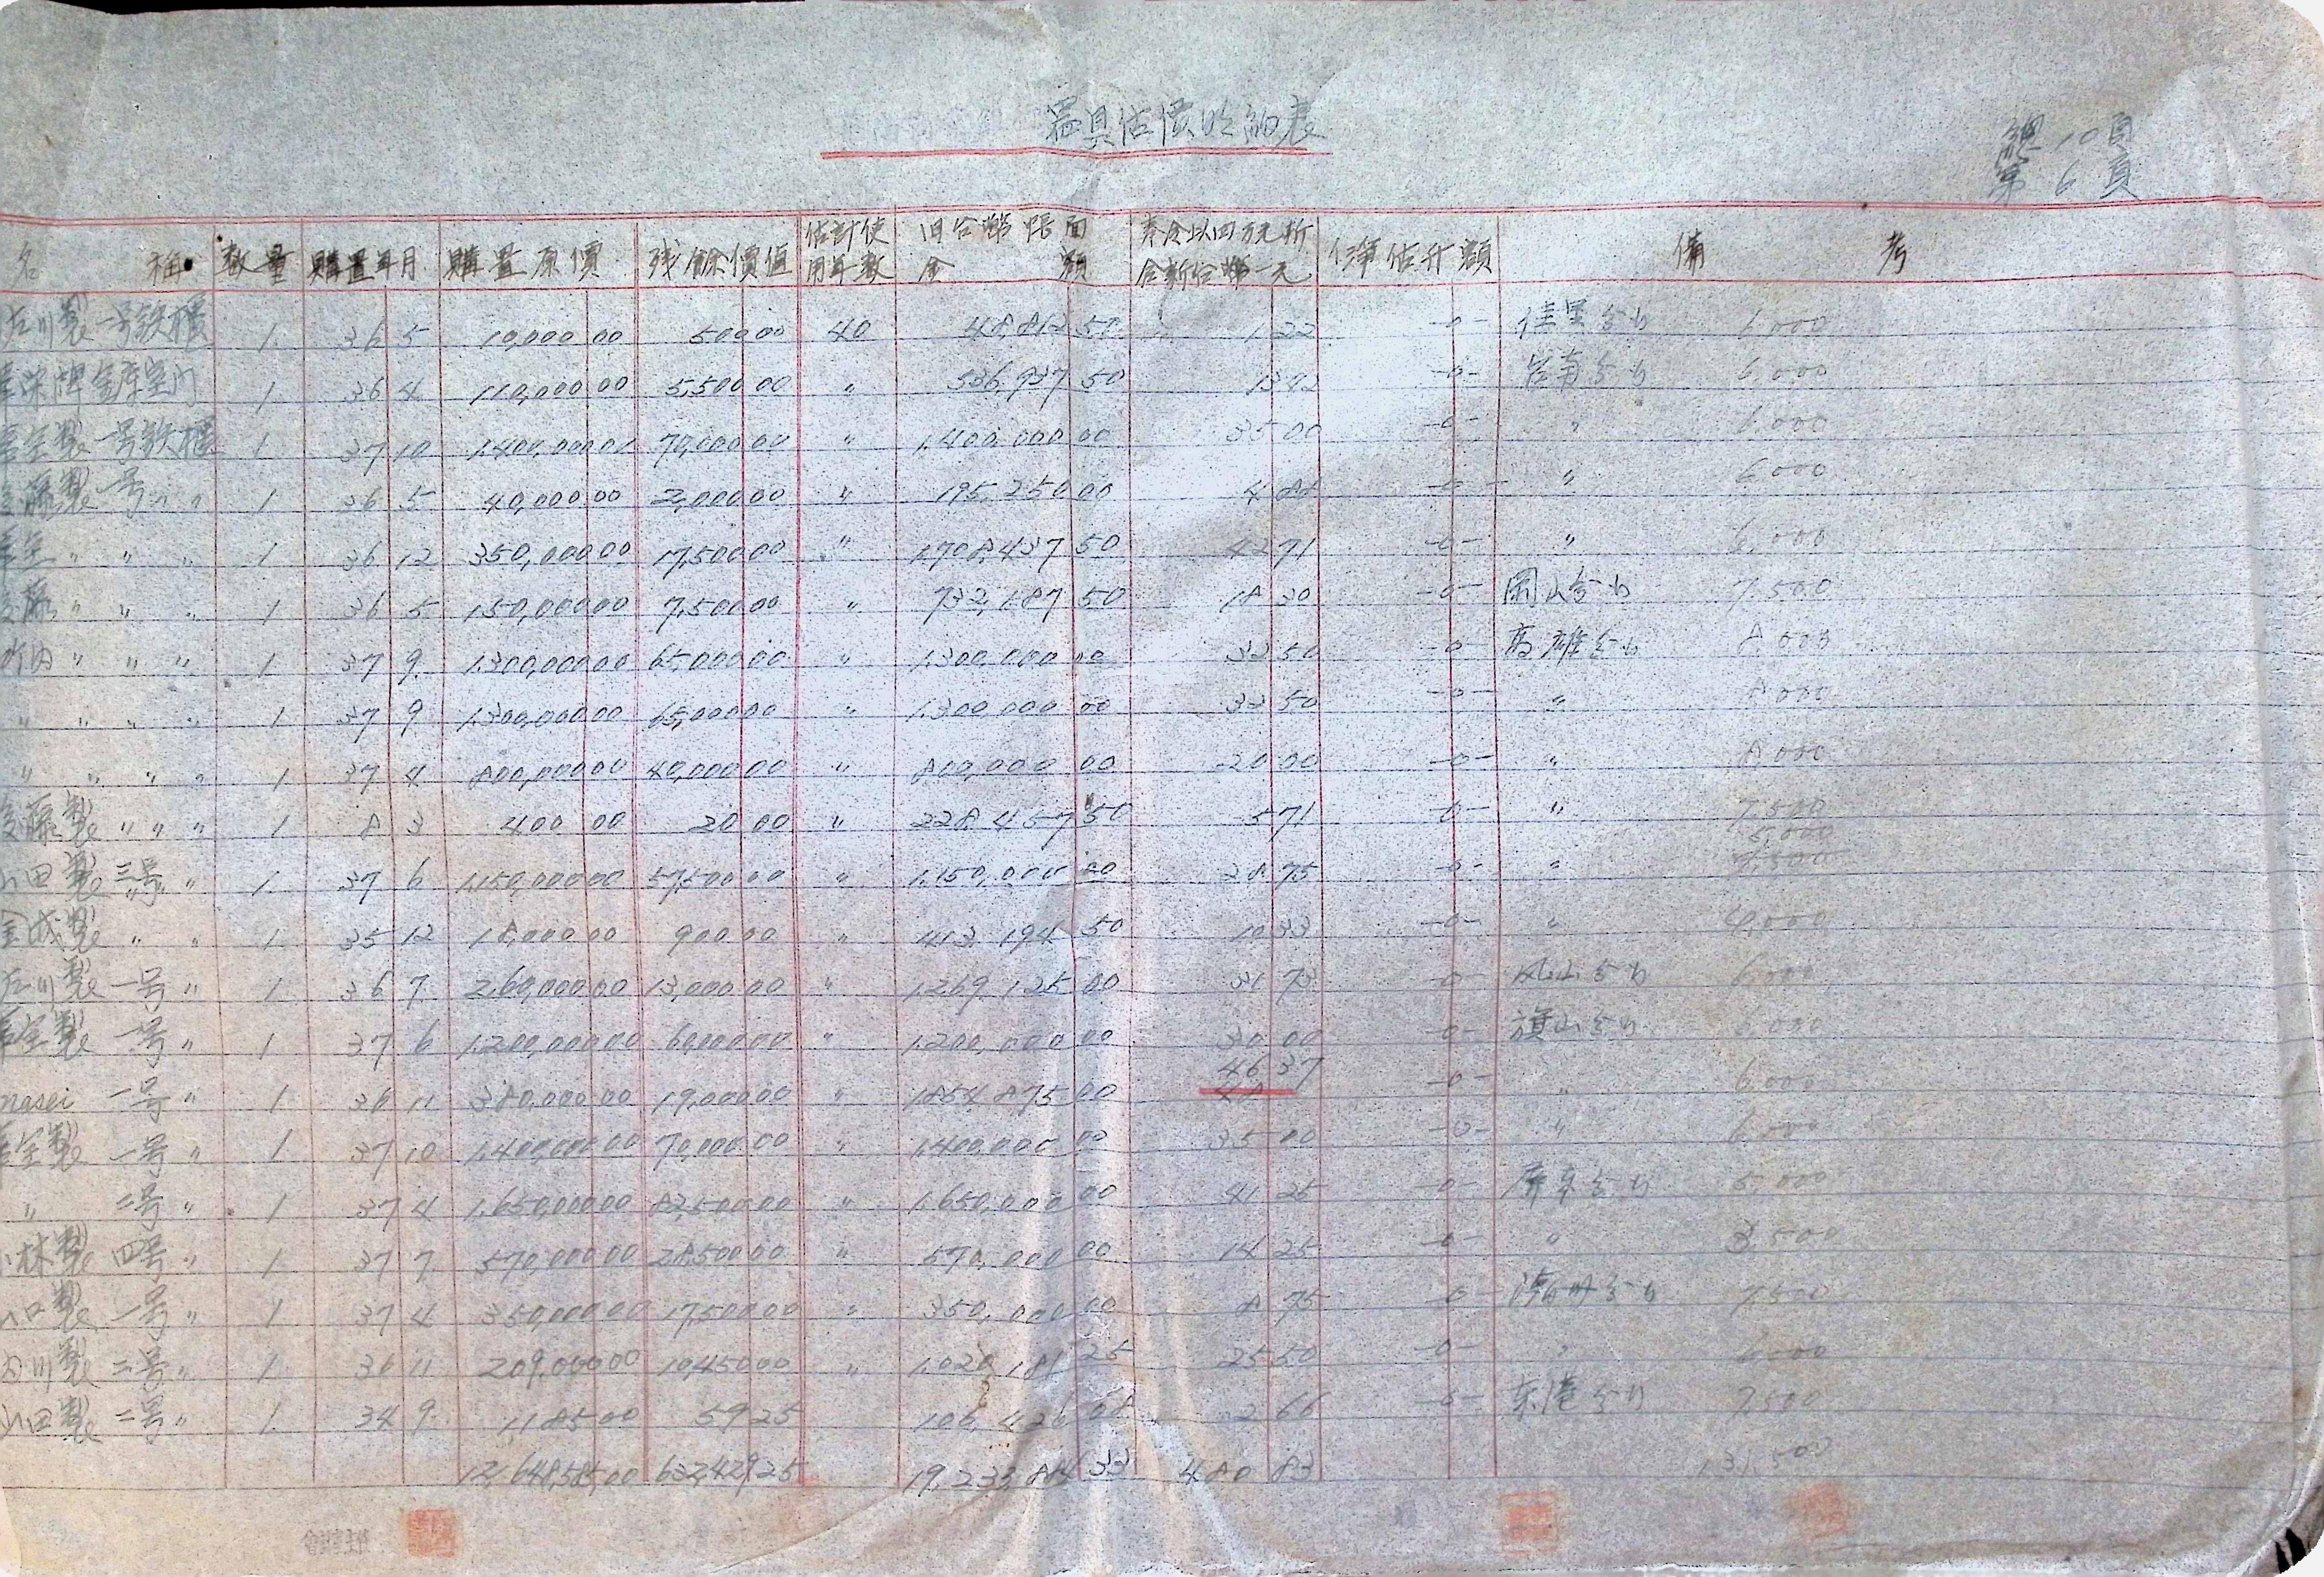 器具估價明細表
總10頁
第6頁
名稱 數量 購置年月 購置原價 残餘價值 估計使用年数 旧台幣帳面金額 奉令以四万元折合新台幣一元 淨估升額 備考
左川製 一号鉄櫃 1 36 5 10,000 00 500 00 40 48,812 50 1 22 -0- 佳里分部 6,000
牌金庫室门 1 36 4 110,000 00 5,500 00 〃 536,937 50 13 42 -0- 台南分部 6,000
製 一号鉄櫃 1 37 10 1,400,000 00 70,000 00 〃 1,400,000 00 35 00 -0- 〃 6,000
藤製 一号 〃 〃 1 36 5 40,000 00 2,000 00 〃 195,250 00 4 88 -0- 〃 6,000
〃 〃 〃 1 36 12 350,000 00 17,500 00 〃 1,708,437 50 42 71 -0- 〃 6,000
藤 〃 〃 〃 1 36 5 150,000 00 7,500 00 〃 732,187 50 18 30 -0- 岡山分部 7,500
内 〃 〃 〃 1 37 9 1,300,000 00 65,000 00 〃 1,300,000 00 32 50 -0- 高雄分部 8,000
〃 〃 〃 〃 1 37 9 1,300,000 00 65,000 00 〃 1,300,000 00 32 50 -0- 〃 8,000
〃 〃 〃 〃 1 37 4 800,000 00 40,000 00 〃 800,000 00 20 00 -0- 〃 8,000
藤製 〃 〃 〃 1 8 3 400 00 20 00 〃 228,457 50 5 71 -0- 〃 7,500
5,000
田製 三号 〃 1 37 6 1,150,000 00 57,500 00 〃 1,150,000 00 28 75 -0- 〃 7,500
金成製 〃 〃 1 35 12 18,000 00 900 00 〃 413,194 50 10 33 -0- 〃 4,000
左川製 一号 〃 1 36 7 260,000 00 13,000 00 〃 1,269,125 00 31 73 -0- 凤山分部 6,000
製 一号 〃 1 37 6 1,200,000 00 60,000 00 〃 1,200,000 00 30 00 -0- 旗山分部 6,000
46 37
nasei 一号 〃 1 36 11 380,000 00 19,000 00 〃 1,854,875 00 -0- 〃 6,000
製 一号 〃 1 37 10 1,400,000 00 70,000 00 〃 1,400,000 00 35 00 -0- 〃 6,000
〃 二号 〃 1 37 4 1,650,000 00 82,500 00 〃 1,650,000 00 41 25 -0- 屏東分部 5,000
林製 四号 〃 1 37 7 570,000 00 28,500 00 〃 570,000 00 14 25 -0- 〃 3,500
口製 一号 〃 1 37 4 350,000 00 17,500 00 〃 350,000 00 8 75 -0- 潮州分部 7,500
川製 二号 〃 1 36 11 209,000 00 10,450 00 〃 1,020,181 25 25 50 -0- 〃 6,000
山田製 二号 〃 1 34 9 1,185 00 59 25 106,426 08 2 66 -0- 东港分部 7,500
12,648,585 00 632,429 25 19,233,884 33 480 83 131,500